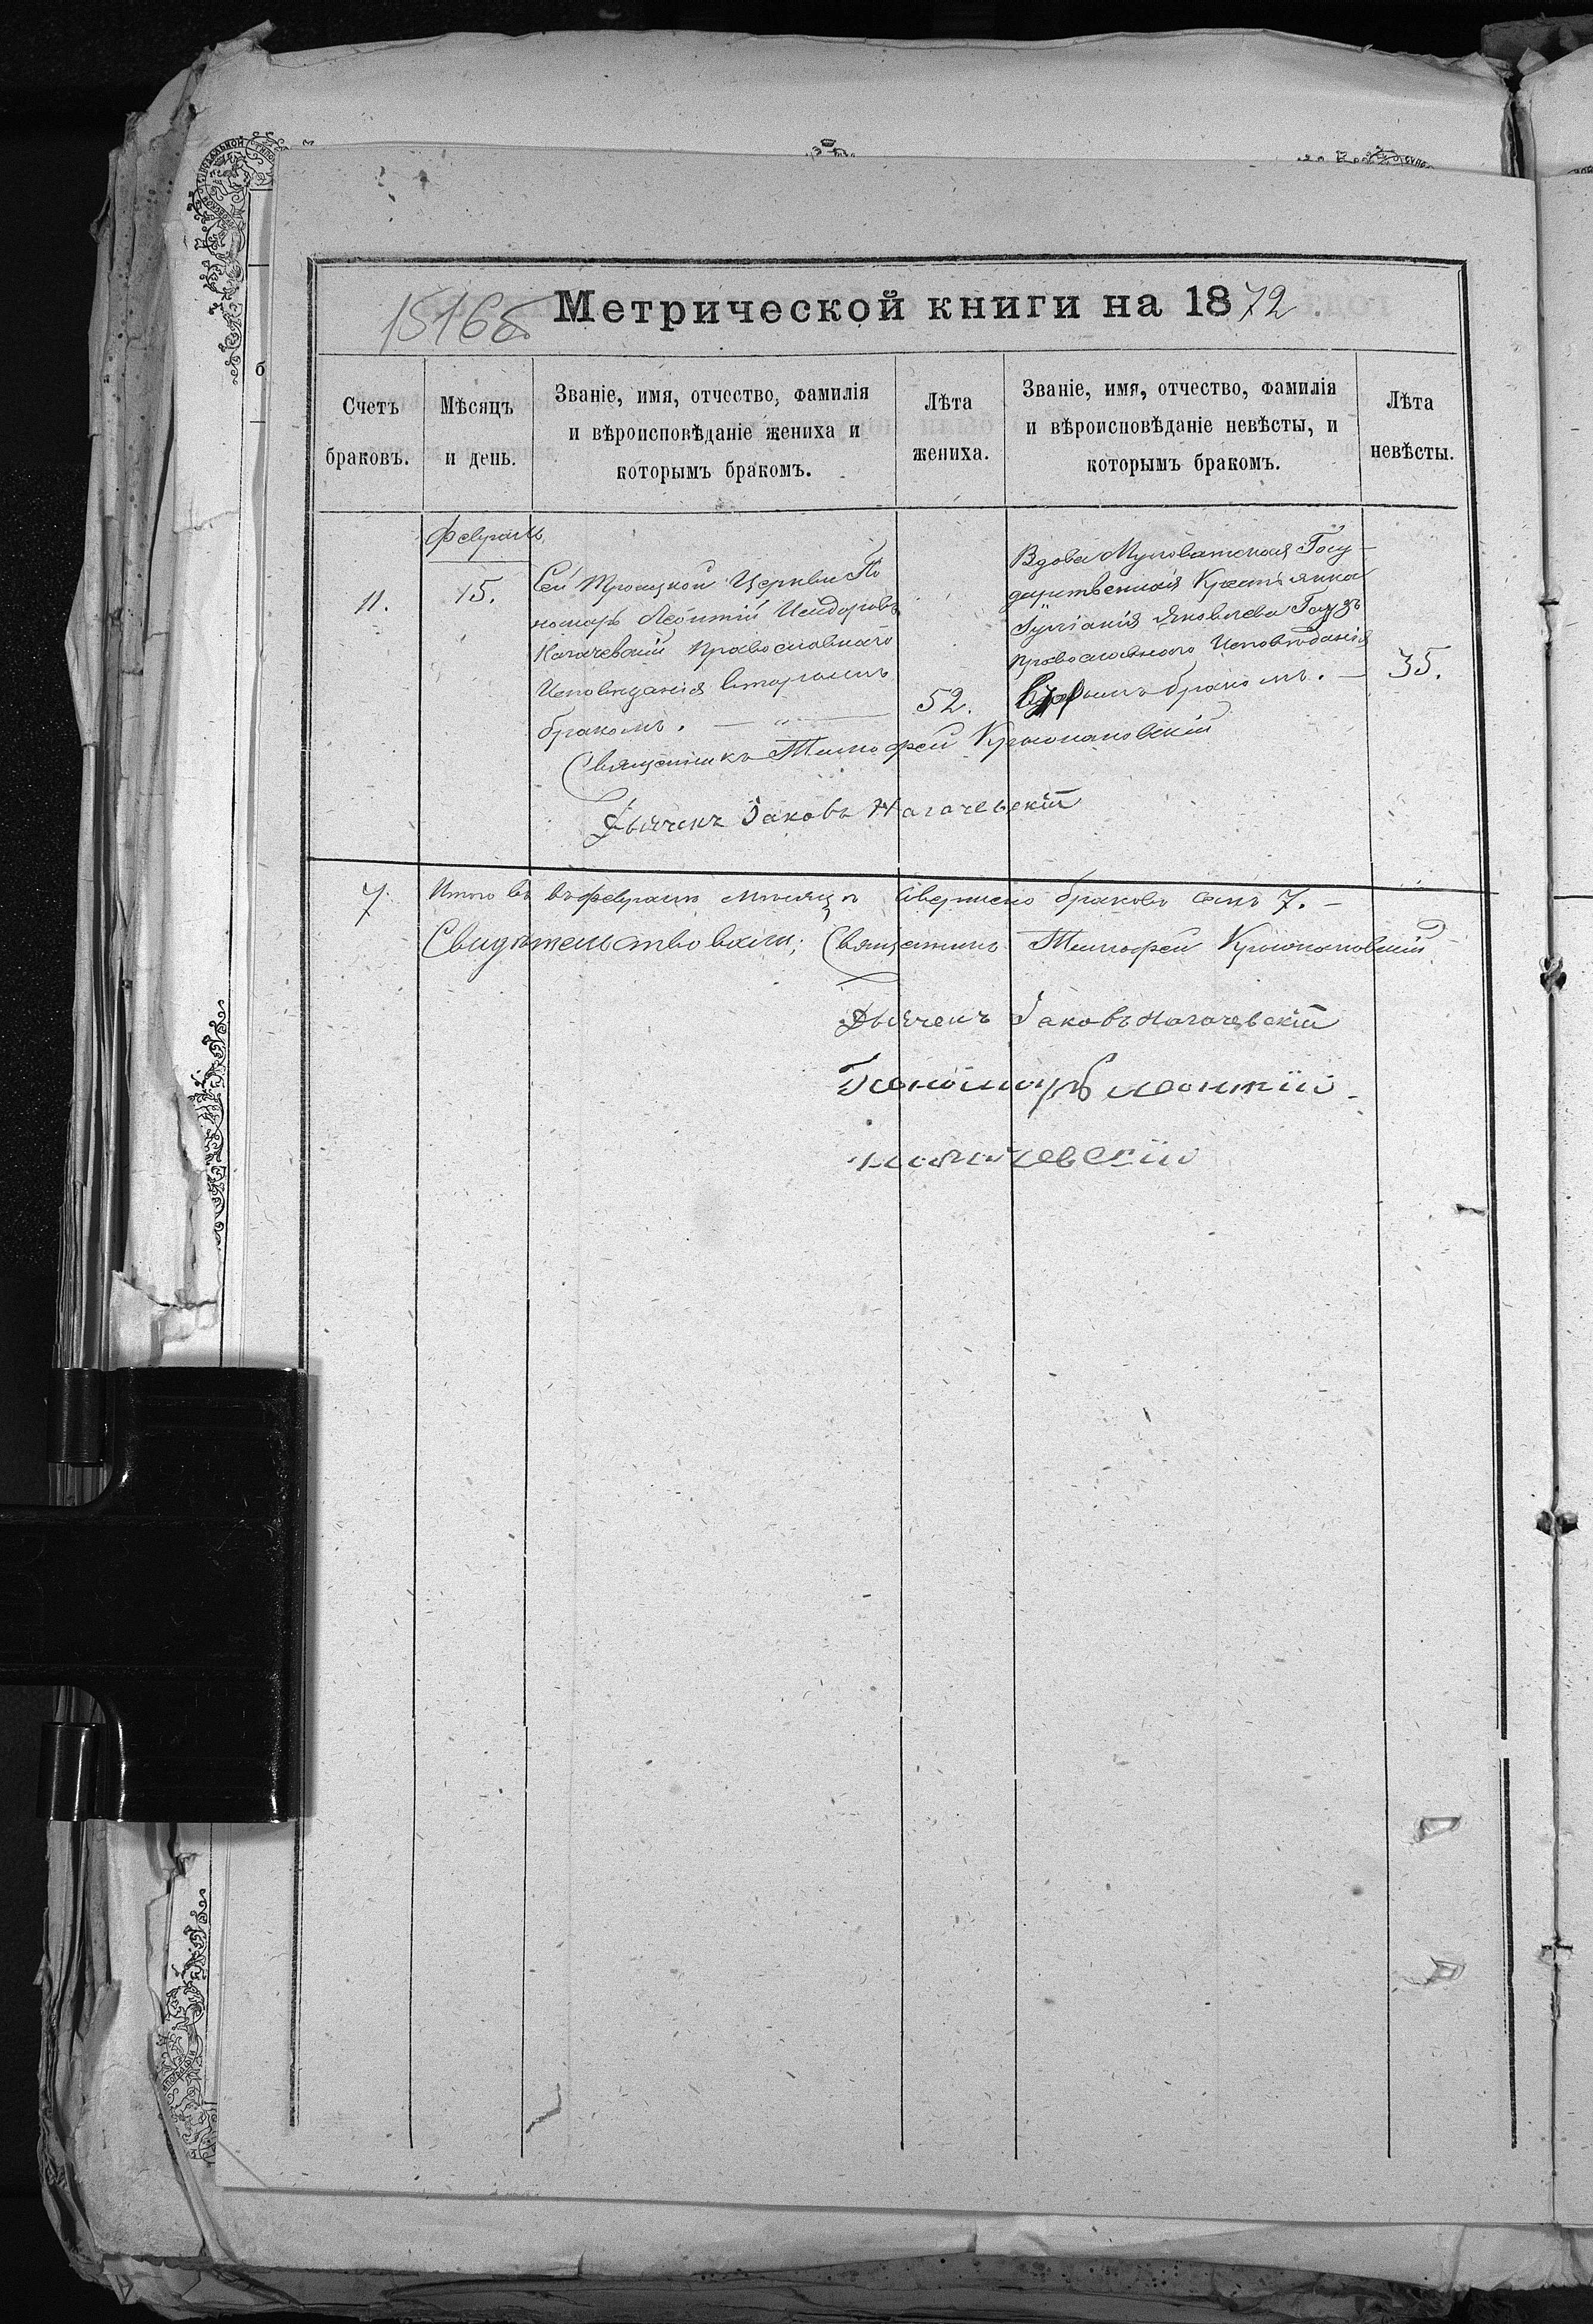 15168
Метрической книги на 1872
Счетъ браковъ.
Мѣсяцъ и день.
Званіе, имя, отчество, фамилія
и вѣроисповѣданіе жениха и
которымъ бракомъ.
Лѣта жениха.
Званіе, имя, отчество, фамилія
и вѣроисповѣданіе невѣсты, и
которымъ бракомъ.
Лѣта невѣсты.
Февраль
11.
15.
Сей Троицкой Церкви По
номарь Леонтій Исидоровъ
Нагачевскій православнаго
Исповѣданія вторымъ
бракомъ. — „ —
52.
Вдова Государ
дарственная Крестьянка
Іуліанія Яковлева
православнаго Исповѣданія
бракомъ. —
35.
Священникъ Тимофей Крыжановскій
Дьячекъ Іаковъ Нагачевскій
7.
Итого въ въ февралѣ мѣсяцѣ совершено браковъ семь 7. —
Свидѣтельствовали; Священникъ Тимофей Крыжановскій
Дьячекъ Іаковъ Нагачевскій
Пономарь Леонтій
Нагачевскій